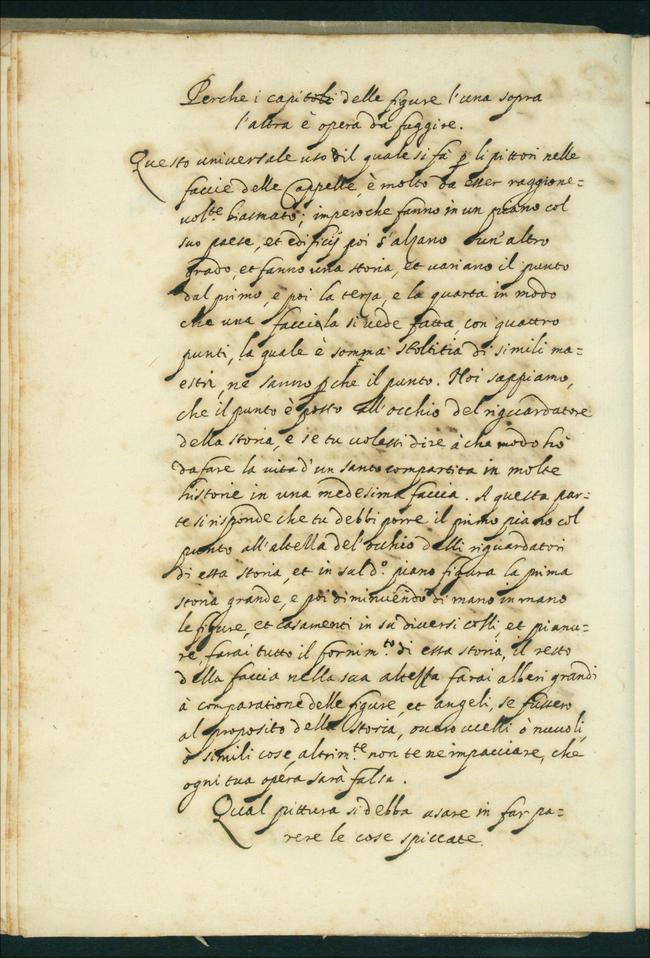 Perche i capitoli delle figure l'una sopra
l'altra è opera da fuggire.
Questo universale uso il quale si fà p li pittori nelle
faccie delle Cappelle, è molto da esser raggione=
vol.te biasmato; imperoche fanno in un piano col
suo paese, et edificij poi s'alzano un'altro
grado, et fanno una storia, et variano il punto
dal primo, e poi la terza, e la quarta in modo
che una facciola si vede fatta, con quattro
punti, la quale è somma stoltitia di simili ma=
estri, ne sanno p che il punto. Noi sappiamo,
che il punto è posto all'occhio del riguardatore
della storia, e se tu volessi dire à che modo hò
da fare la vita d'un santo compartita in molte
historie in una medesima faccia. A questa par=
te si risponde che tu debbi porre il primo piano col
punto all'altezza del'occhio delli riguardatori
di esta storia, et in sul d.o piano figura la prima
storia grande, e poi diminuendo di mano in mano
le figure, et casamenti in su diversi colli, et pianu=
re, farai tutto il fornim.to di essa storia, il resto
della faccia nella sua altezza farai alberi grandi
à comparatione delle figure, et angeli, se fussero
al proposito della storia, overo ucelli ò nuvoli,
ò simili cose, altrim.te non te ne impacciare, che
ogni tua opera sarà falsa.
Qual pittura si debba usare in far pa=
rere le cose spiccate.